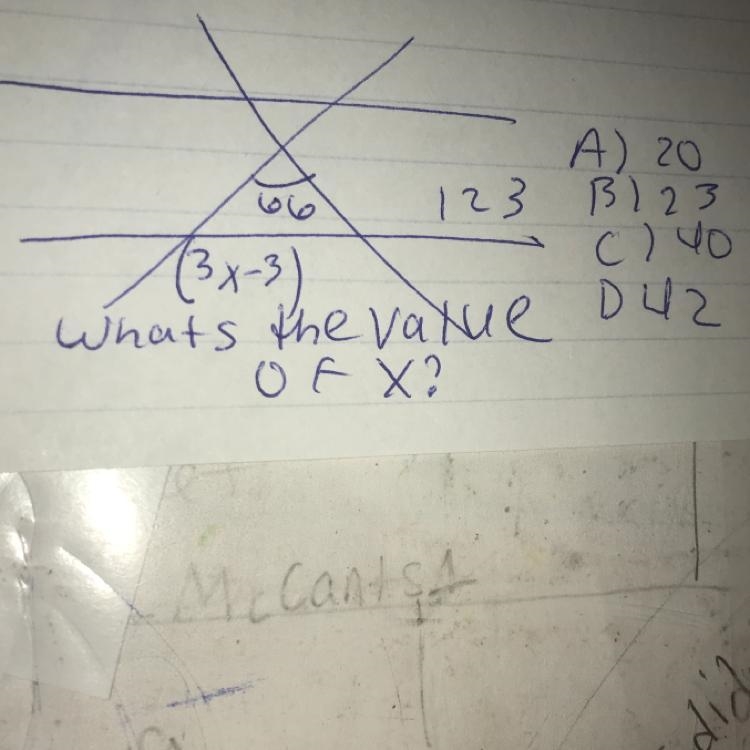 A) 20
66 123 B) 23
(3x-3) C) 40
D 42
Whats the value
OF X?
McCants
did